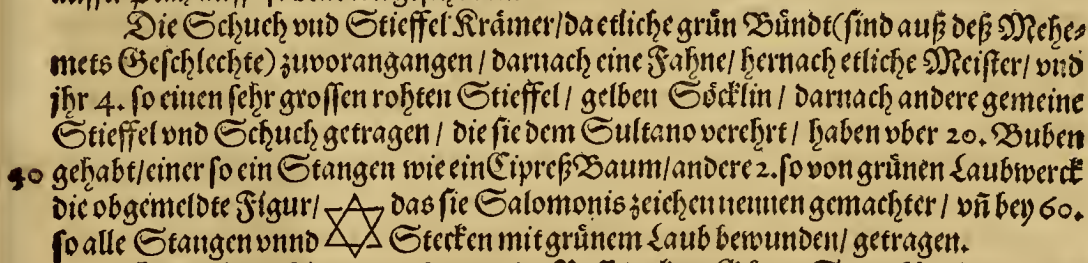 Die Schuch vnd Stieffel Krämer/da etliche grün Bündt(sind auß deß Mehe⸗
mets Geschlechte) zuvorangangen / darnach eine Fahne/ hernach etliche Meister/ vnd
jhr 4. so einen sehr grossen rohten Stieffel / gelben Söcklin / darnach andere gemeine
Stieffel vnd Schuch getragen / die sie dem Sultano verehrt / haben vber 20. Buben
40 gehabt/einer so ein Stangen wie ein Cipreß Baum/andere 2. so von grünen Laubwerck
die obgemeldte Figur/ ✡ das sie Salomonis zeichen nennen gemachter / vñ bey 60.
so alle Stangen vnnd Stecken mit grünem Laub bewunden/ getragen.